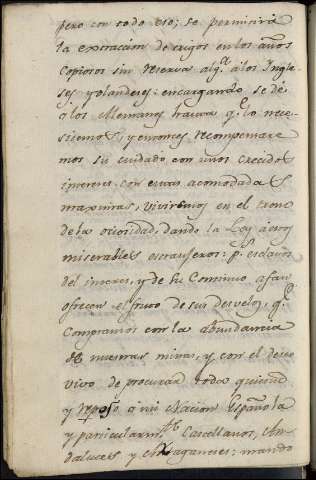 pero con todo eso; se permitirá
la extracion de trigos en los años
copiosos sin reserva alg.ᵃ á los Ingle-
ses y olandeses: encargando se dé
á los Alemanes hasta q.ᵉ lo nece-
sitemos, y entonces recompensare
mos su cuidado con unos crecidos
intereses. con estas acomodadas
maximas, viviremos en el trono
de la ociosidad, dando la Ley á esos
miserables estrangeros: p.ˢ esclavos
del interes, y de su continuo afan
ofrecen el fruto de sus desvelos, q.ᵉ
compramos con la abundancia
de nuestras minas, y con el deseo
vivo de procurar toda quietud
y reposo á mi Nacion Española
y particularm.ᵗᵉ Castellanos, An
daluces y Aragoneses: mando